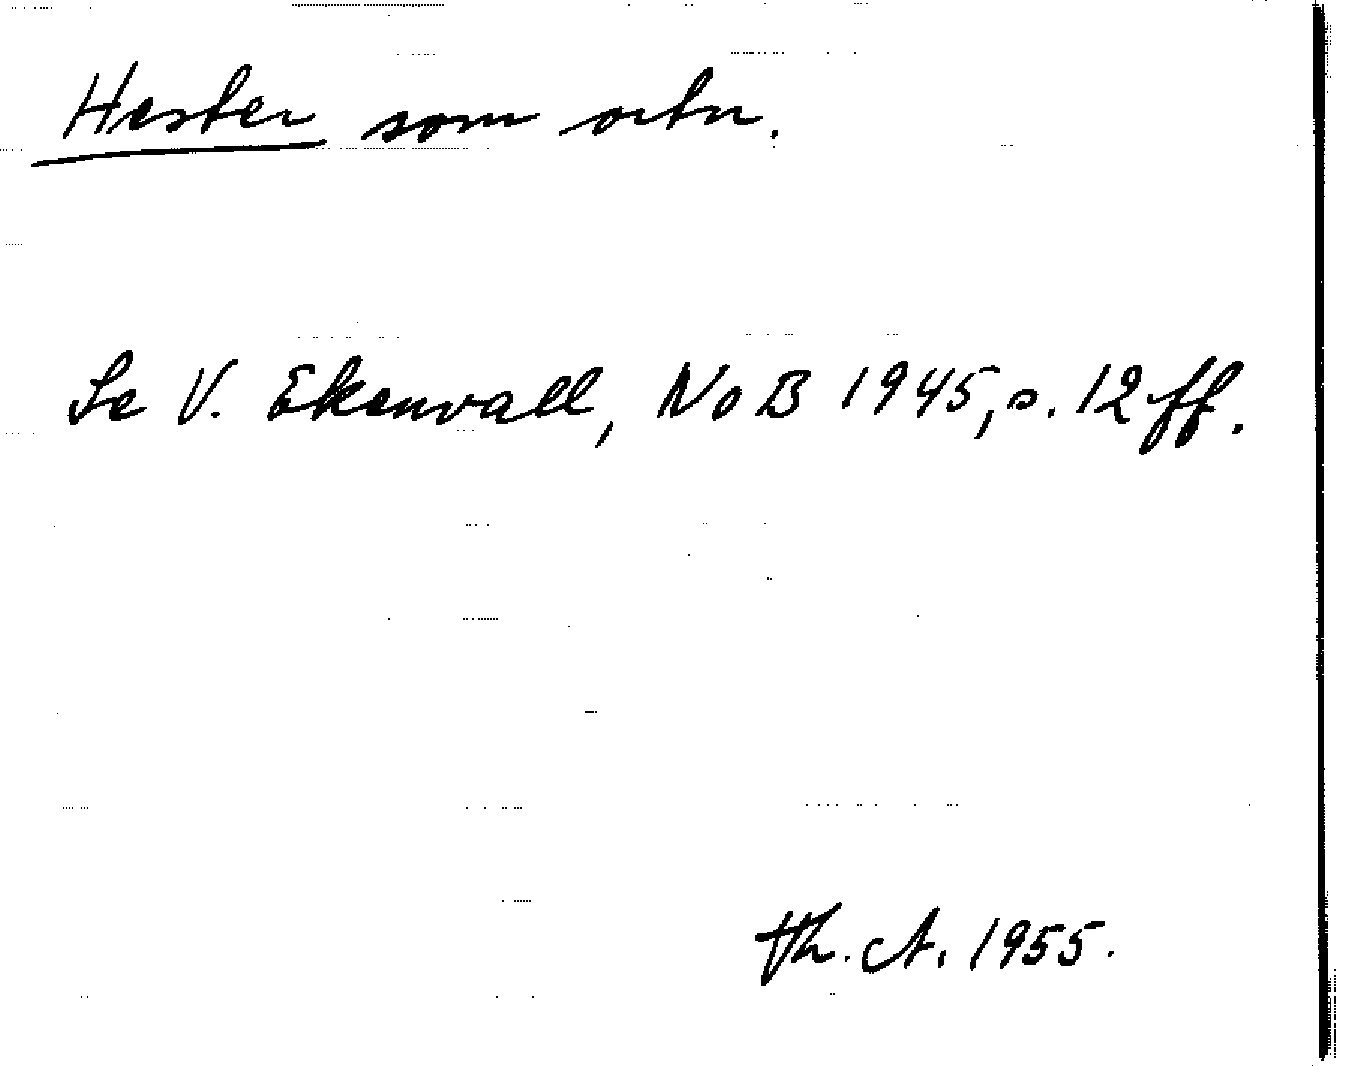 Hester som ortn.
Se V. Ekenvall, NoB 1945, s. 12 ff.
Th. A. 1955.